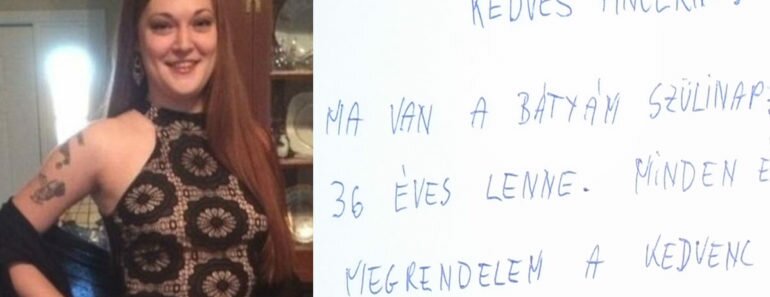 KEDVES
MA VAN A BÁTYÁM SZÜLINAP
36 ÉVES LENNE. MINDEN É
MEGRENDELEM A KEDVENC